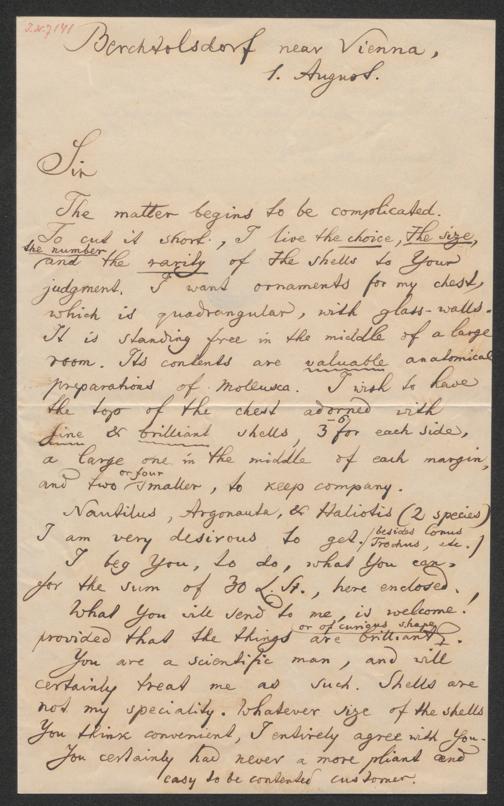 J.N. 7141
Berchtolsdorf near Vienna,
1. August.
Sir
The matter begins to be complicated.
To cut it short, I live the choice, the size,
the number
and the rarity of the shells to Your
judgment. I want ornaments for my chest,
which is quadrangular, with glass-walls.
It is standing free in the middle of a large
room. Its contents are valuable anatomical
preparations of Mollusca. I wish to have
the top of the chest adorned with
fine & brilliant shells, 3-6 for each side,
a large one in the middle of each margin,
or four
and two smaller, to keep company.
Nautilus, Argonauta, & Haliotis (2 species)
I am very desirous to get. (besides Conus
Trochus, etc.)
I beg You, to do, what You can,
for the sum of 30 L. St., here enclosed.
What You will send to me, is welcome,
or of curious shape
provided that the things are brilliant.
You are a scientific man, and will
certainly treat me as such. Shells are
not my speciality. Whatever size of the shells
You think convenient, I entirely agree with You.
You certainly had never a more pliant and
easy to be contented customer.